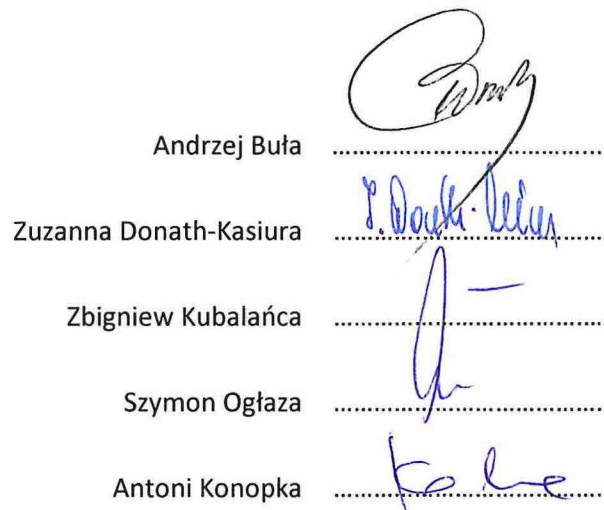 Andrzej Buła ........................................
Zuzanna Donath-Kasiura ........................................
Zbigniew Kubalańca ........................................
Szymon Ogłaza ........................................
Antoni Konopka ........................................